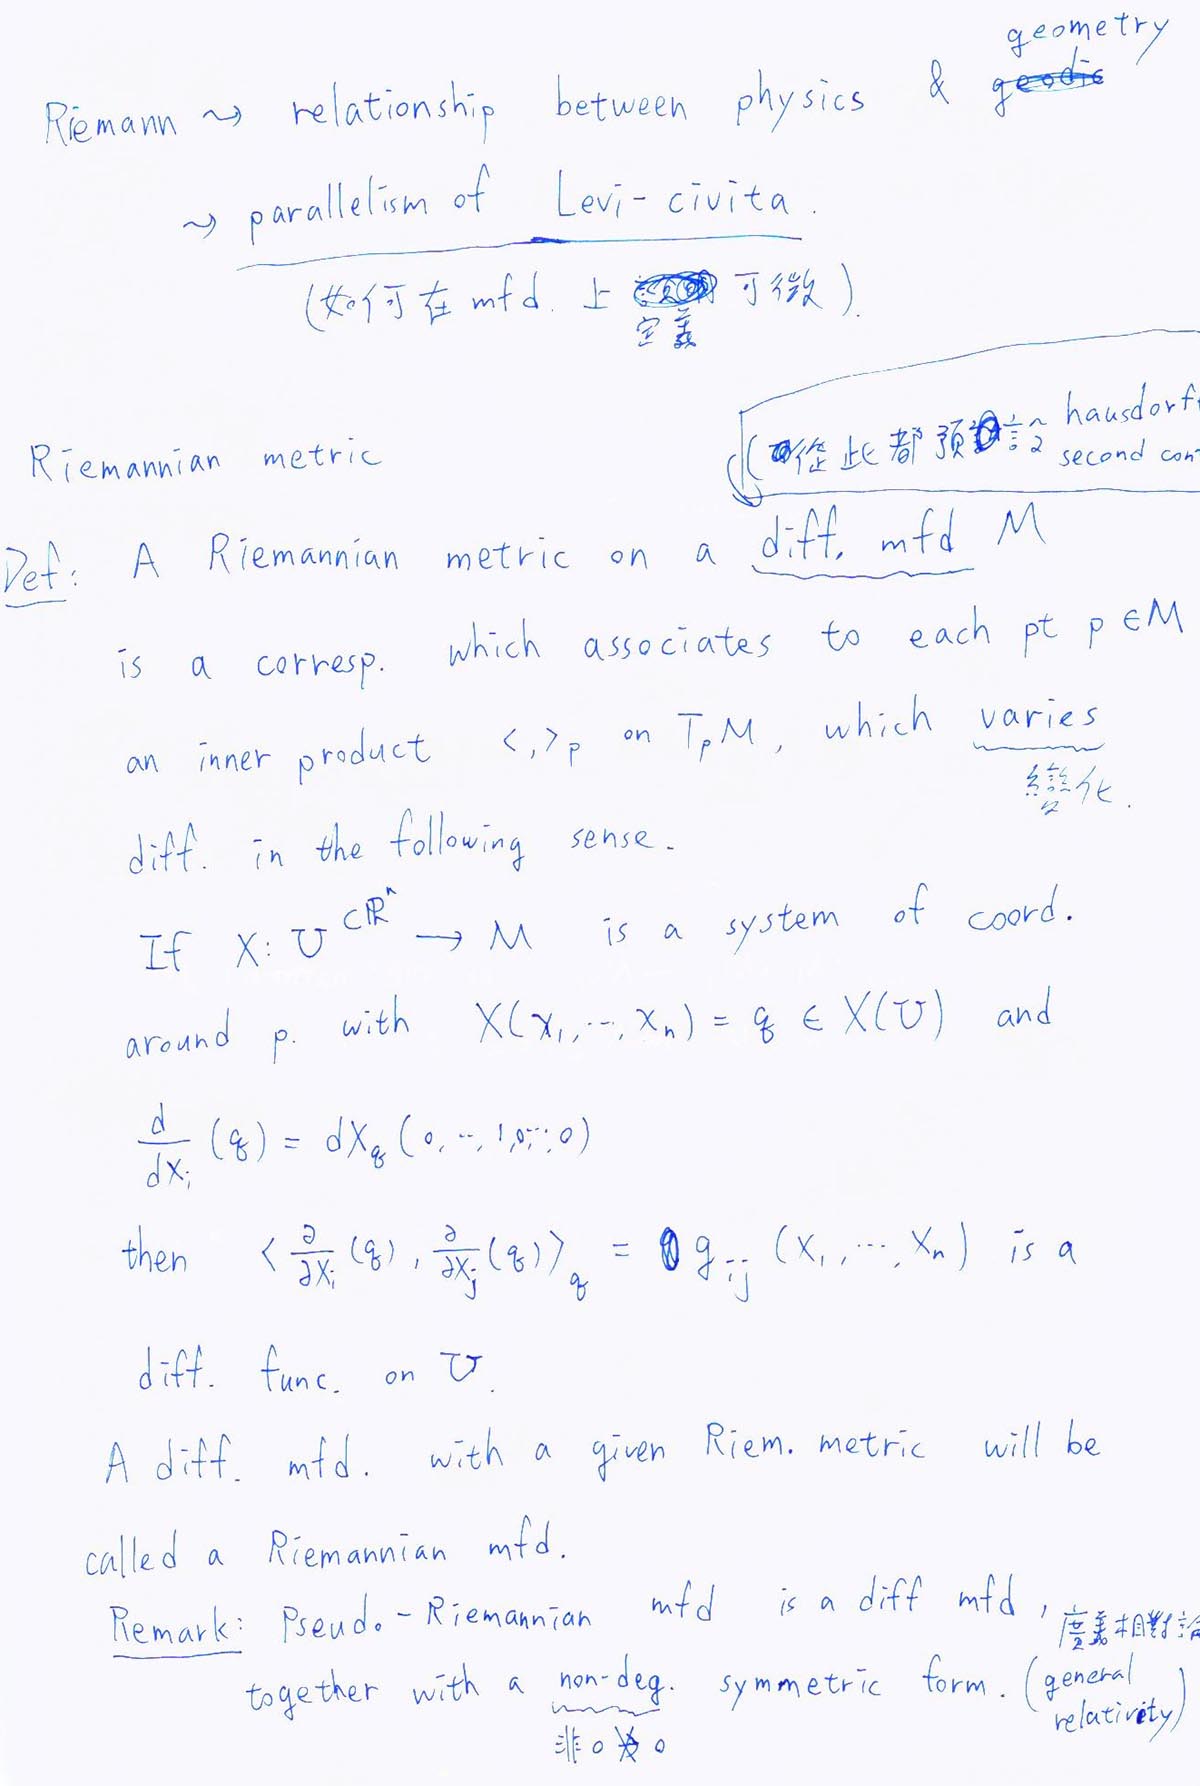 geometry
Riemann ⇝ relationship between physics &
⇝ parallelism of Levi-civita.
(如何在 mfd. 上 可微).
定義
(從此都預設 hausdorff
second con
Riemannian metric
Def: A Riemannian metric on a diff. mfd M
is a corresp. which associates to each pt p ∈ M
an inner product <,>p on TpM, which varies
變化.
diff. in the following sense.
If X: U ⊂ ℝⁿ → M is a system of coord.
around p. with X(x₁, ⋯, xₙ) = q ∈ X(U) and
d/dxᵢ (q) = dXq (0, ⋯, 1, 0, ⋯, 0)
then ⟨∂/∂xᵢ (q), ∂/∂xⱼ (q)⟩q = gᵢⱼ (x₁, ⋯, xₙ) is a
diff. func. on U.
A diff. mfd. with a given Riem. metric will be
called a Riemannian mfd.
Remark: Pseudo-Riemannian mfd is a diff mfd,
廣義相對論
together with a non-deg. symmetric form. (general
relativity)
非0